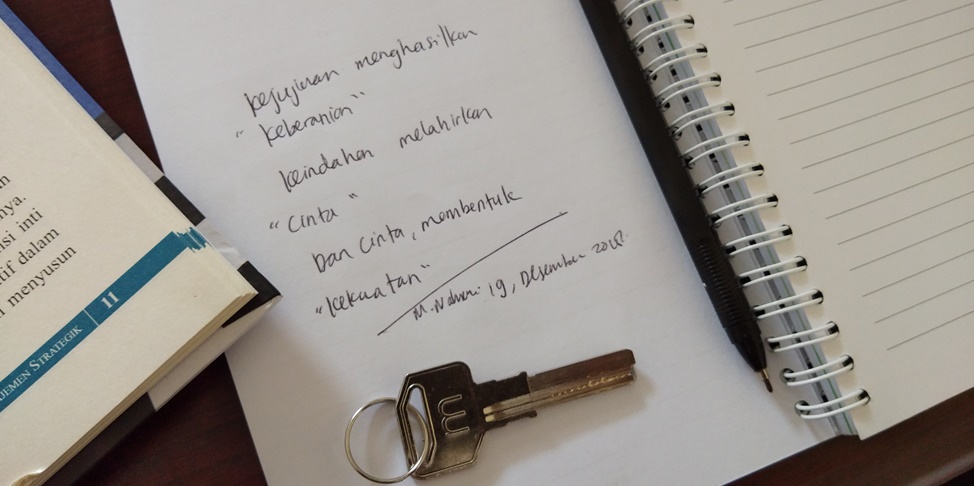 kejujuran menghasilkan
" keberanian "
keindahan melahirkan
" Cinta "
Dan Cinta, membentuk
" kekuatan "
19, Desember 2018.
n
nya.
nsi inti
tif dalam
n menyusun
JEMEN STRATEGIK | 11
m